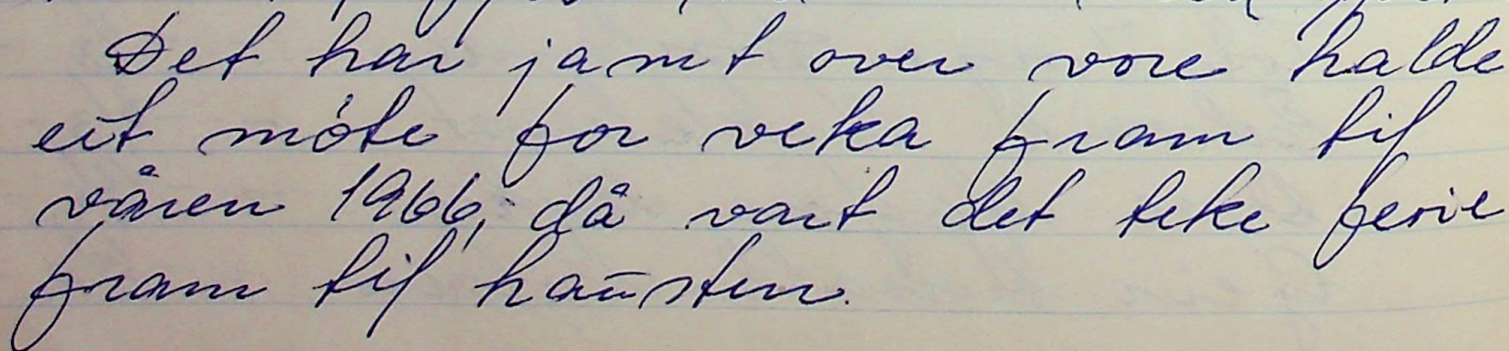 Det har jamt over vore halde
eit móte for veka fram til
våren 1966, då vart det teke ferie
fram til hausten.